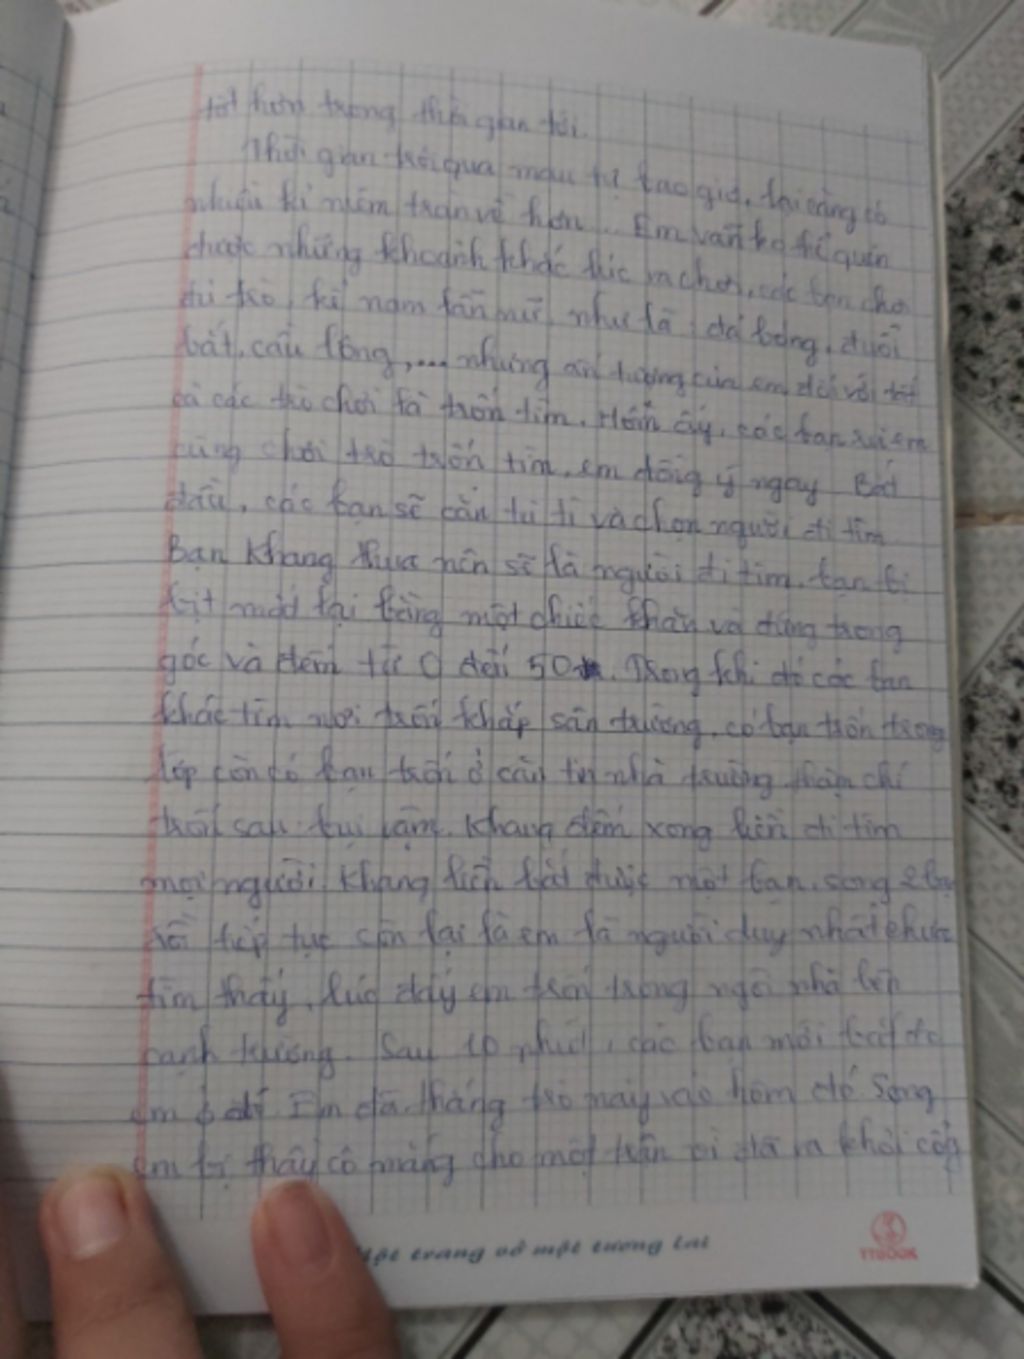 tốt hơn trong thời gian tới.
Thời gian trôi qua mau tự bao giờ, lại càng có
nhiều kỉ niệm tràn về hơn. Em vẫn ko thể quên
được những khoảnh khắc lúc ra chơi, các bạn chơi
đủ trò, kể năm lần nữ, như là: đá bóng, đuổi
bắt, cầu lông,... nhưng ấn tượng của em đối với tất
cả các trò chơi là trốn tìm. Hôm ấy, các bạn rủ em
cùng chơi trò trốn tìm, em đồng ý ngay. Bắt
đầu, các bạn sẽ oẳn tù tì và chọn người đi tìm
Bạn Khang thua nên sẽ là người đi tìm. Bạn bị
bịt mắt lại bằng một chiếc khăn và đứng trong
góc và đếm từ 0 đến 50. Trong khi đó các bạn
khác tìm nơi trốn khắp sân trường, có bạn trốn trong
lớp còn có bạn trốn ở căn tin nhà trường thậm chí
trốn sau bụi rậm. Khang đếm xong liền đi tìm
mọi người. Khang liền bắt được một bạn, song 2 bạn
rồi tiếp tục còn lại là em là người duy nhất chưa
tìm thấy, lúc đấy em trốn trong ngôi nhà bên
cạnh trường. Sau 10 phút, các bạn mới bắt đc
em ở đó. Em đã thắng trò này vào hôm đó song
em bị thầy cô mắng cho một trận vì đã ra khỏi cổng
Một trang vở một tương lai
TTBOOK